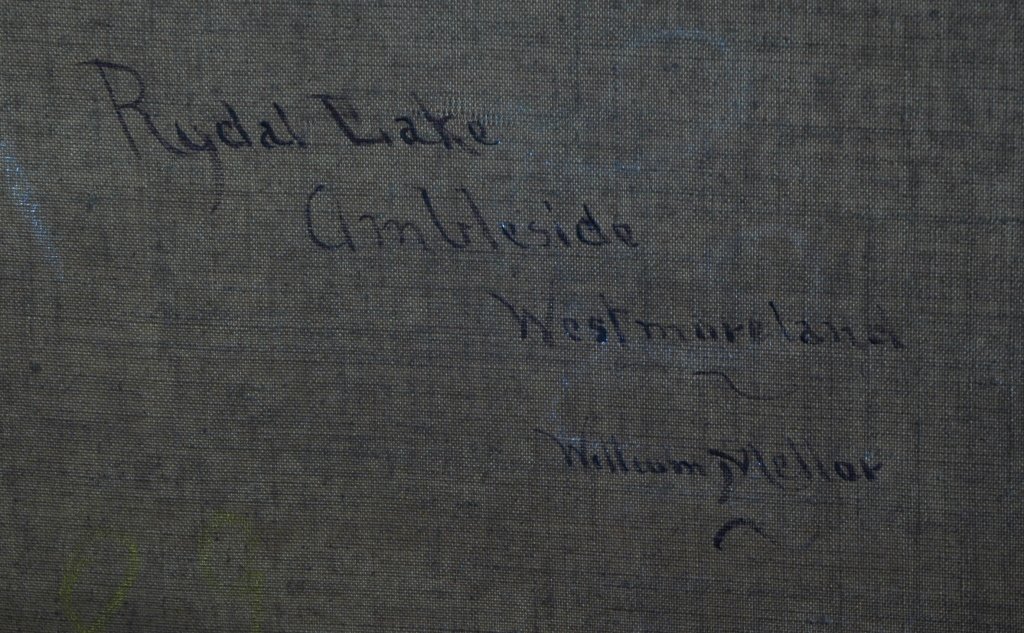 Rydal Lake
Ambleside
Westmoreland
William Mellor